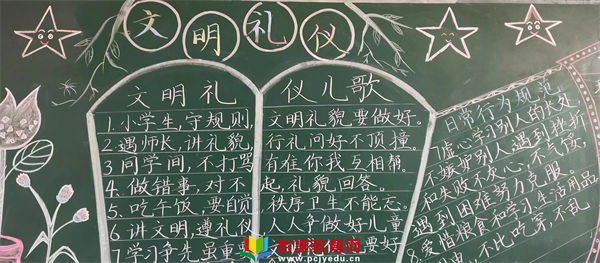 文明礼仪
文明礼仪儿歌
1.小学生,守规则 文明礼貌要做好。
2.遇师长,讲礼貌, 行礼问好不顶撞。
3同学间,不打骂 有难你我互相帮。
4.做错事,对不起,礼貌回答。
5.吃午饭,要自觉 秩序卫生不能无。
6讲文明,遵礼仪 人人争做好儿童
7学习争先虽重要 要好
日常行为规范
7虚心学习别人的长处
不嫉妒别人遇到挫折
和失败不灰心,不气馁,
遇到困难努力克服。
8.爱惜粮食和学习生活用品
不比吃穿,不乱
www.pcjyedu.cn